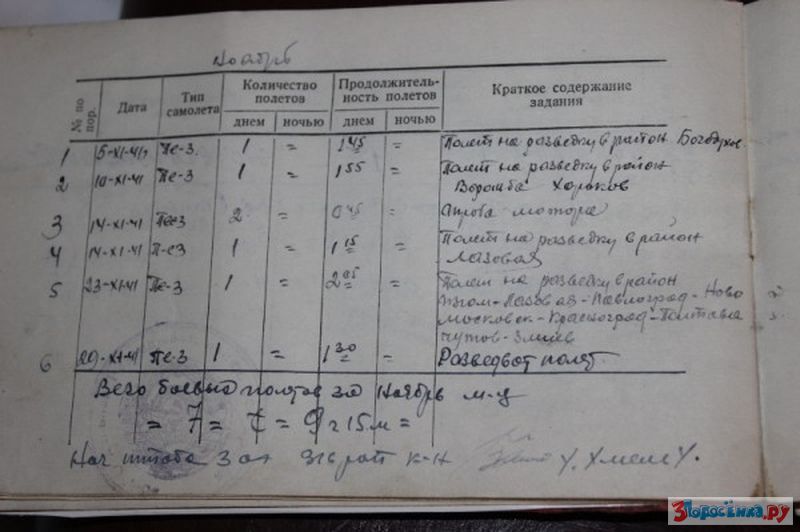 Ноябрь
№ по пор. Дата Тип самолета Количество полетов Продолжитель-ность полетов Краткое содержание задания
днем ночью днем ночью
1 5-XI-41 Пе-3. 1 = 1 45 = Полет на разведку в район Богодухов.
2 10-XI-41 Пе-3 1 = 1 55 = Полет на разведку в район
Ворожба Харьков
3 14-XI-41 Пе-3 2 = 0 45 = Проба мотора
4 14-XI-41 Пе-3 1 = 1 15 = Полет на разведку в район
Лазовая
5 23-XI-41 Пе-3 1 = 2 05 = Полет на разведку в район
Изюм-Лазовая-Павлоград-Ново
московск-Красноград-Полтава
Чутов-Змиев
6 29-XI-41 Пе-3 1 = 1 30 = Разведыват полет.
Всего боевых полетов за Ноябрь м-ц
= 7 = с = 9 ч 15 м =
Нач штаба 3 аэ к-н
3Поросёнка.ру